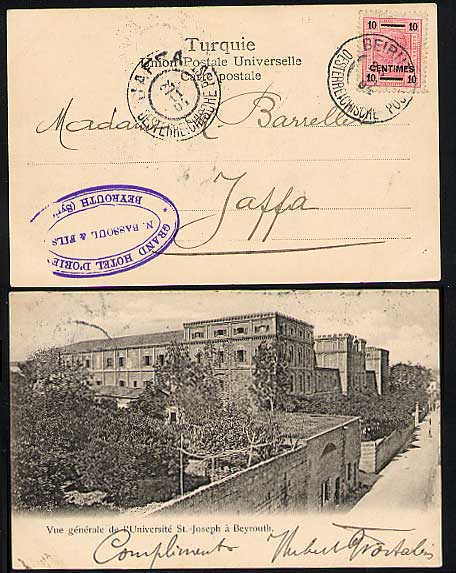 Turquie
Union Postale Universelle
Carte postale
JAFFA
OESTERREICHISCHE POST
10 10
CENTIMES
10 10
OESTERREICHISCHE POST
Madame Barrelle
Jaffa
GRAND HOTEL D'ORIE
N. BASSOUL & FILS
BEYROUTH (Syr
Vue générale de l'Université St. Joseph à Beyrouth.
Compliments Hubert Portalis